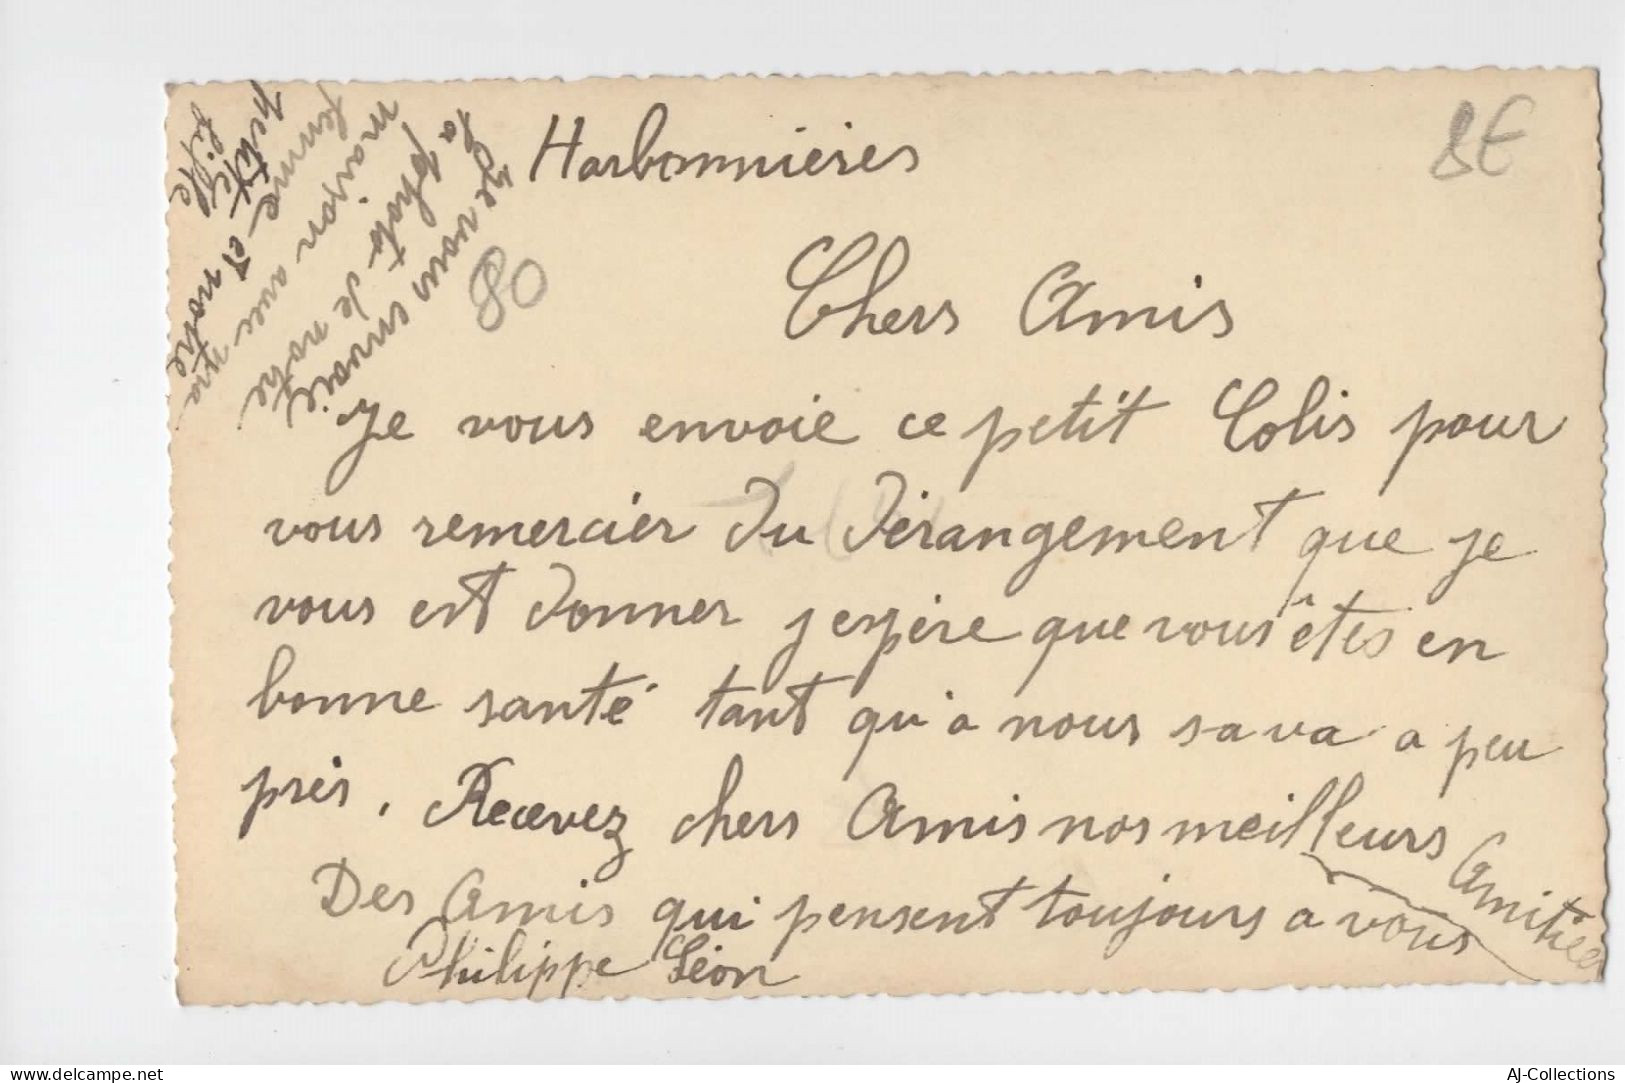 Harbonnières
8€
Chers Amis
Je vous envoie ce petit Colis pour
vous remercier du dérangement que je
vous est donner j espère que vous êtes en
bonne santé tant qu'a nous sa va a peu
près. Recevez chers Amis nos meilleurs Amitiées
Des Amis qui pensent toujours a vous
Philippe Léon
Je vous envoie
la photo de notre
maison avec ma
femme et notre
petite
fille
80
www.delcampe.net
AJ-Collections